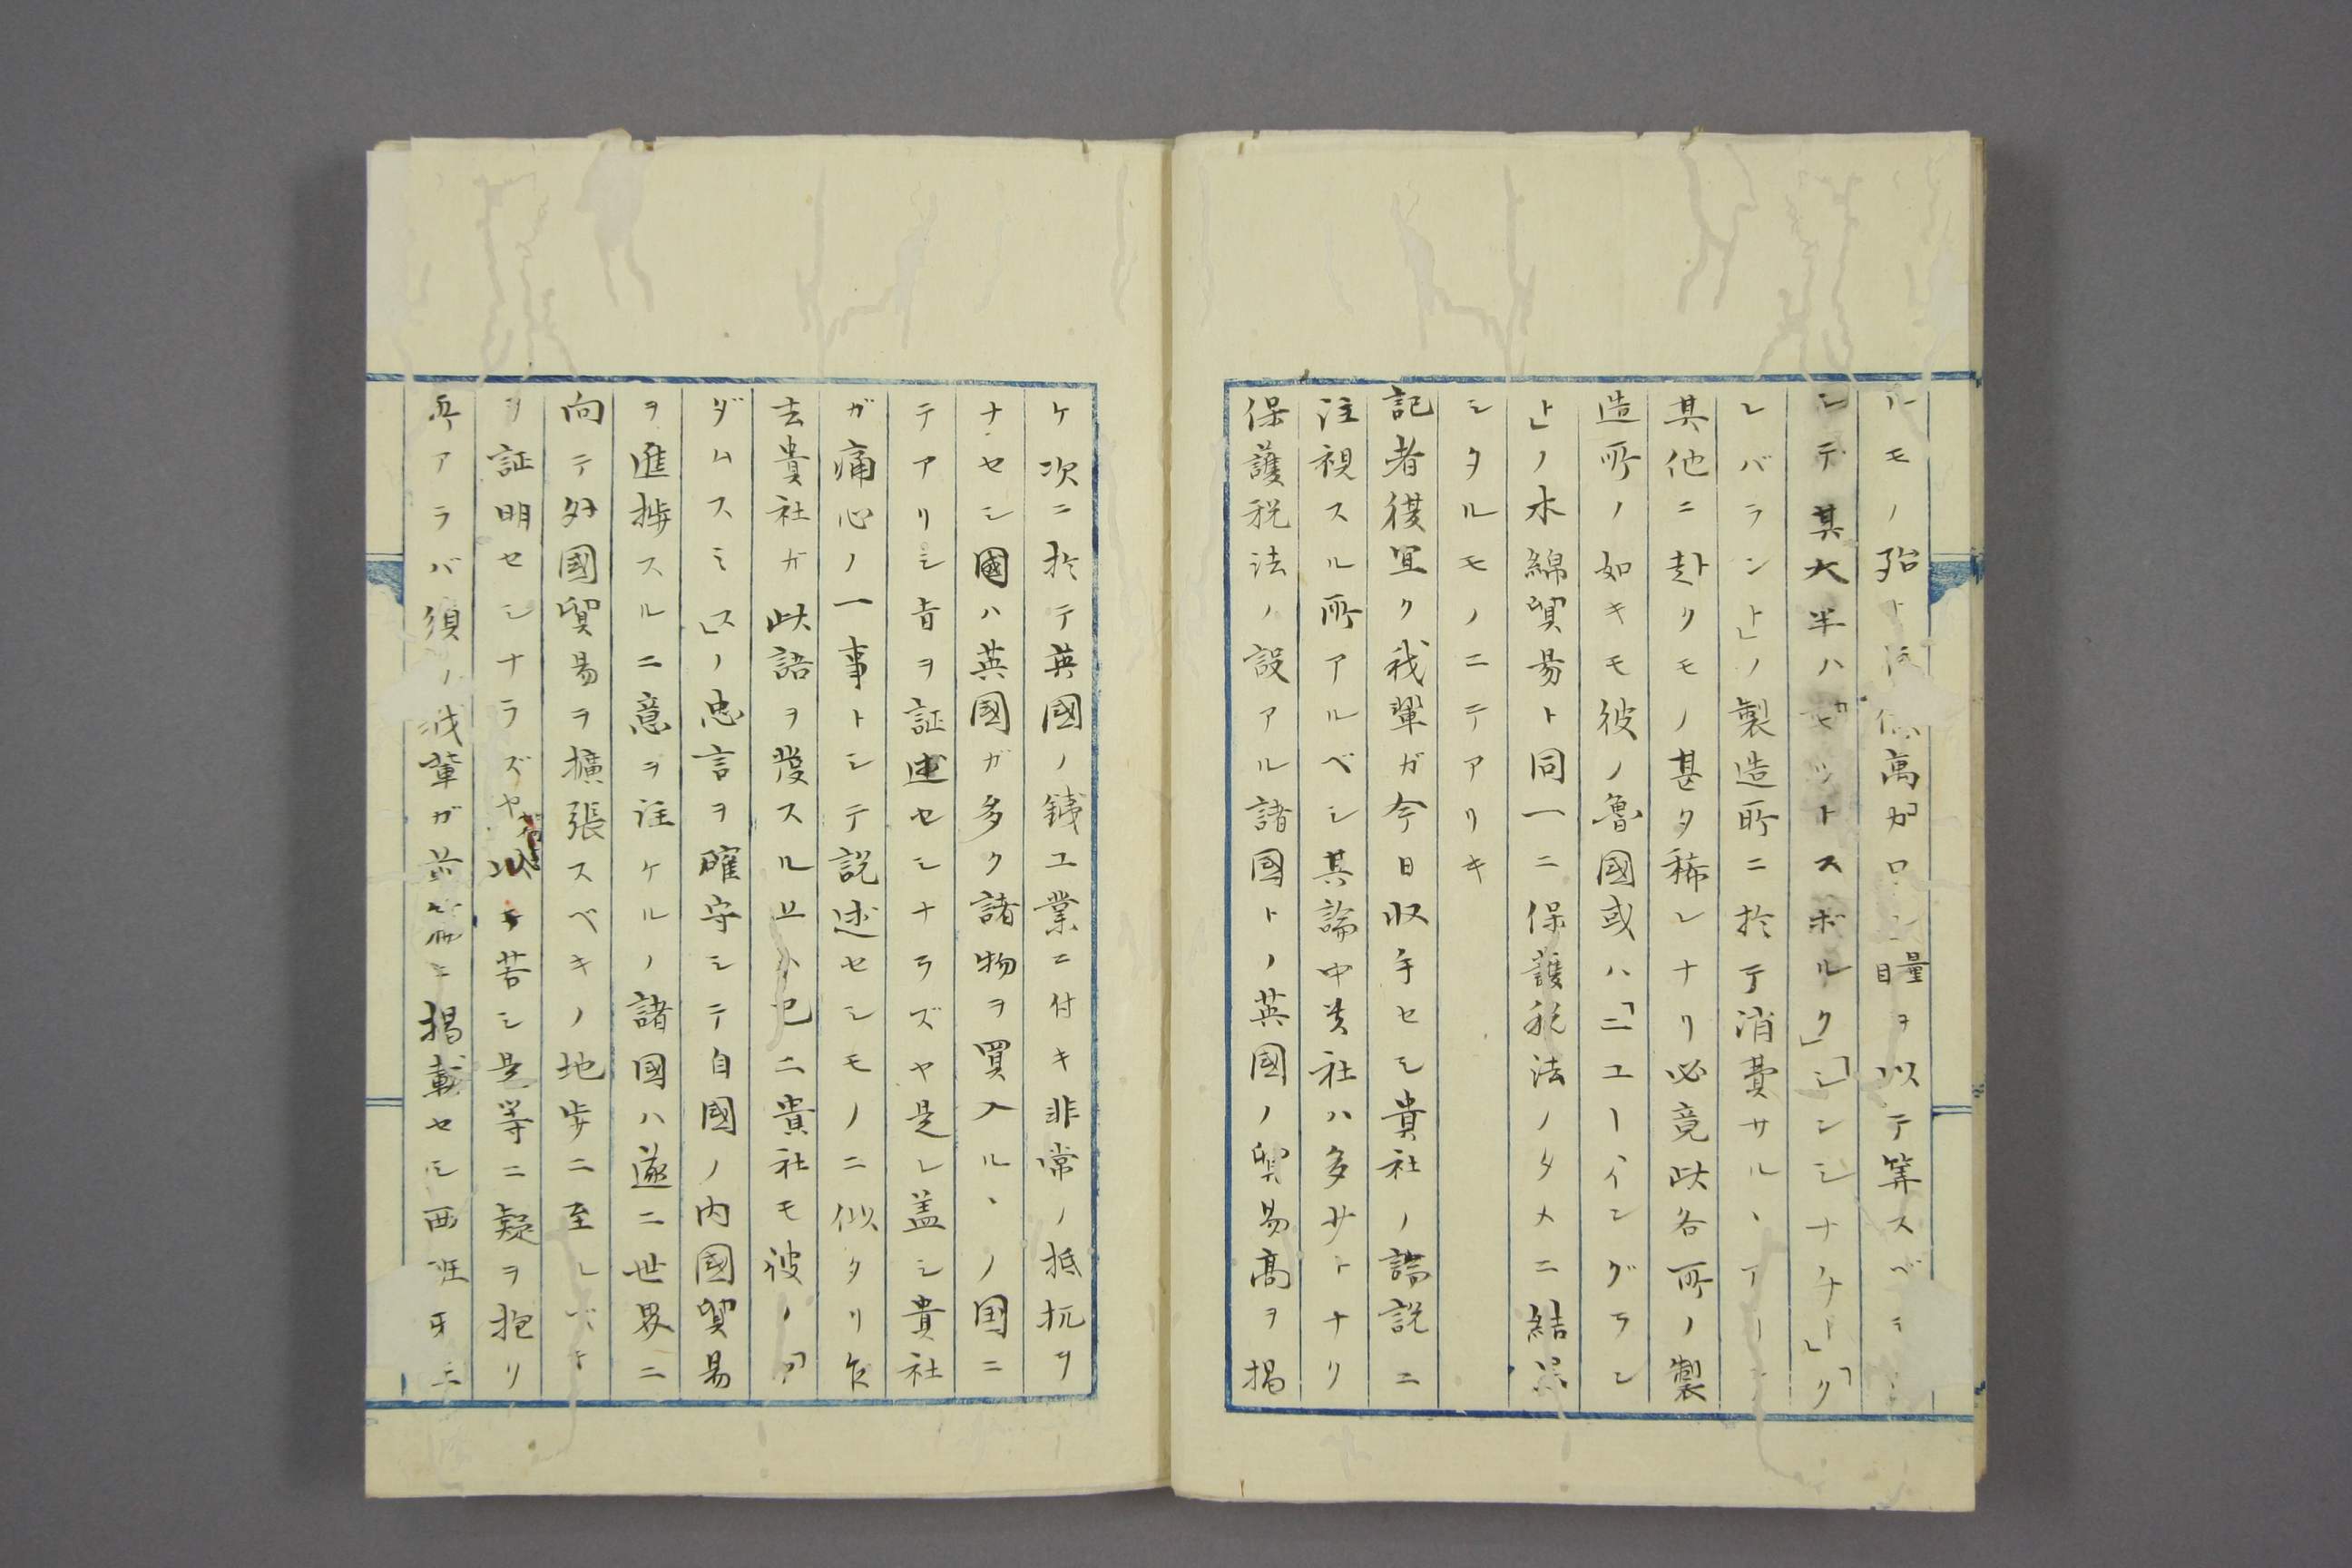 ルモノ殆ト 萬「ガロン量目ヲ以テ算スベシ
シテ其大半ハ「モットスボルク」「シンシナチー」「ク
レバランド」ノ製造所ニ於テ消費サルヽ
其他ニ赴クモノ甚タ稀レナリ必竟此各所ノ製
造所ノ如キモ彼ノ魯國或ハ「ニユーイングラン
ト」ノ木綿貿易ト同一ニ保護税法ノタメニ結果
シタルモノニテアリキ
記者復宜ク我輩ガ今日収手セシ貴社ノ論説ニ
注視スル所アルベシ其論中貴社ハ多サトナリ
保護税法ノ設アル諸國トノ英国ノ貿易高ヲ掲
ケ次ニ於テ英國ノ鉄工業ニ付キ非常ノ抵抗ヲ
ナセシ國ハ英國ガ多ク諸物ヲ買入ルヽノ国ニ
テアリシ旨ヲ証述セシナラズヤ是レ蓋シ貴社
ガ痛心ノ一事トシテ説述セシモノニ似タリ矣
去貴社ガ此語ヲ發スル 已ニ貴社モ彼ノ「ア
ダムスミス」ノ忠言ヲ確守シテ自國ノ内國貿易
ヲ進捗スルニ意ヲ注ケルノ諸國ハ遂ニ世界ニ
向テ外國貿易ヲ擴張スベキノ地歩ニ至レ
ヲ証明セシナラズヤ 若シ是等ニ疑ヲ抱リ
アラバ須ノ我輩ガ前 ニ掲載セシ西班牙